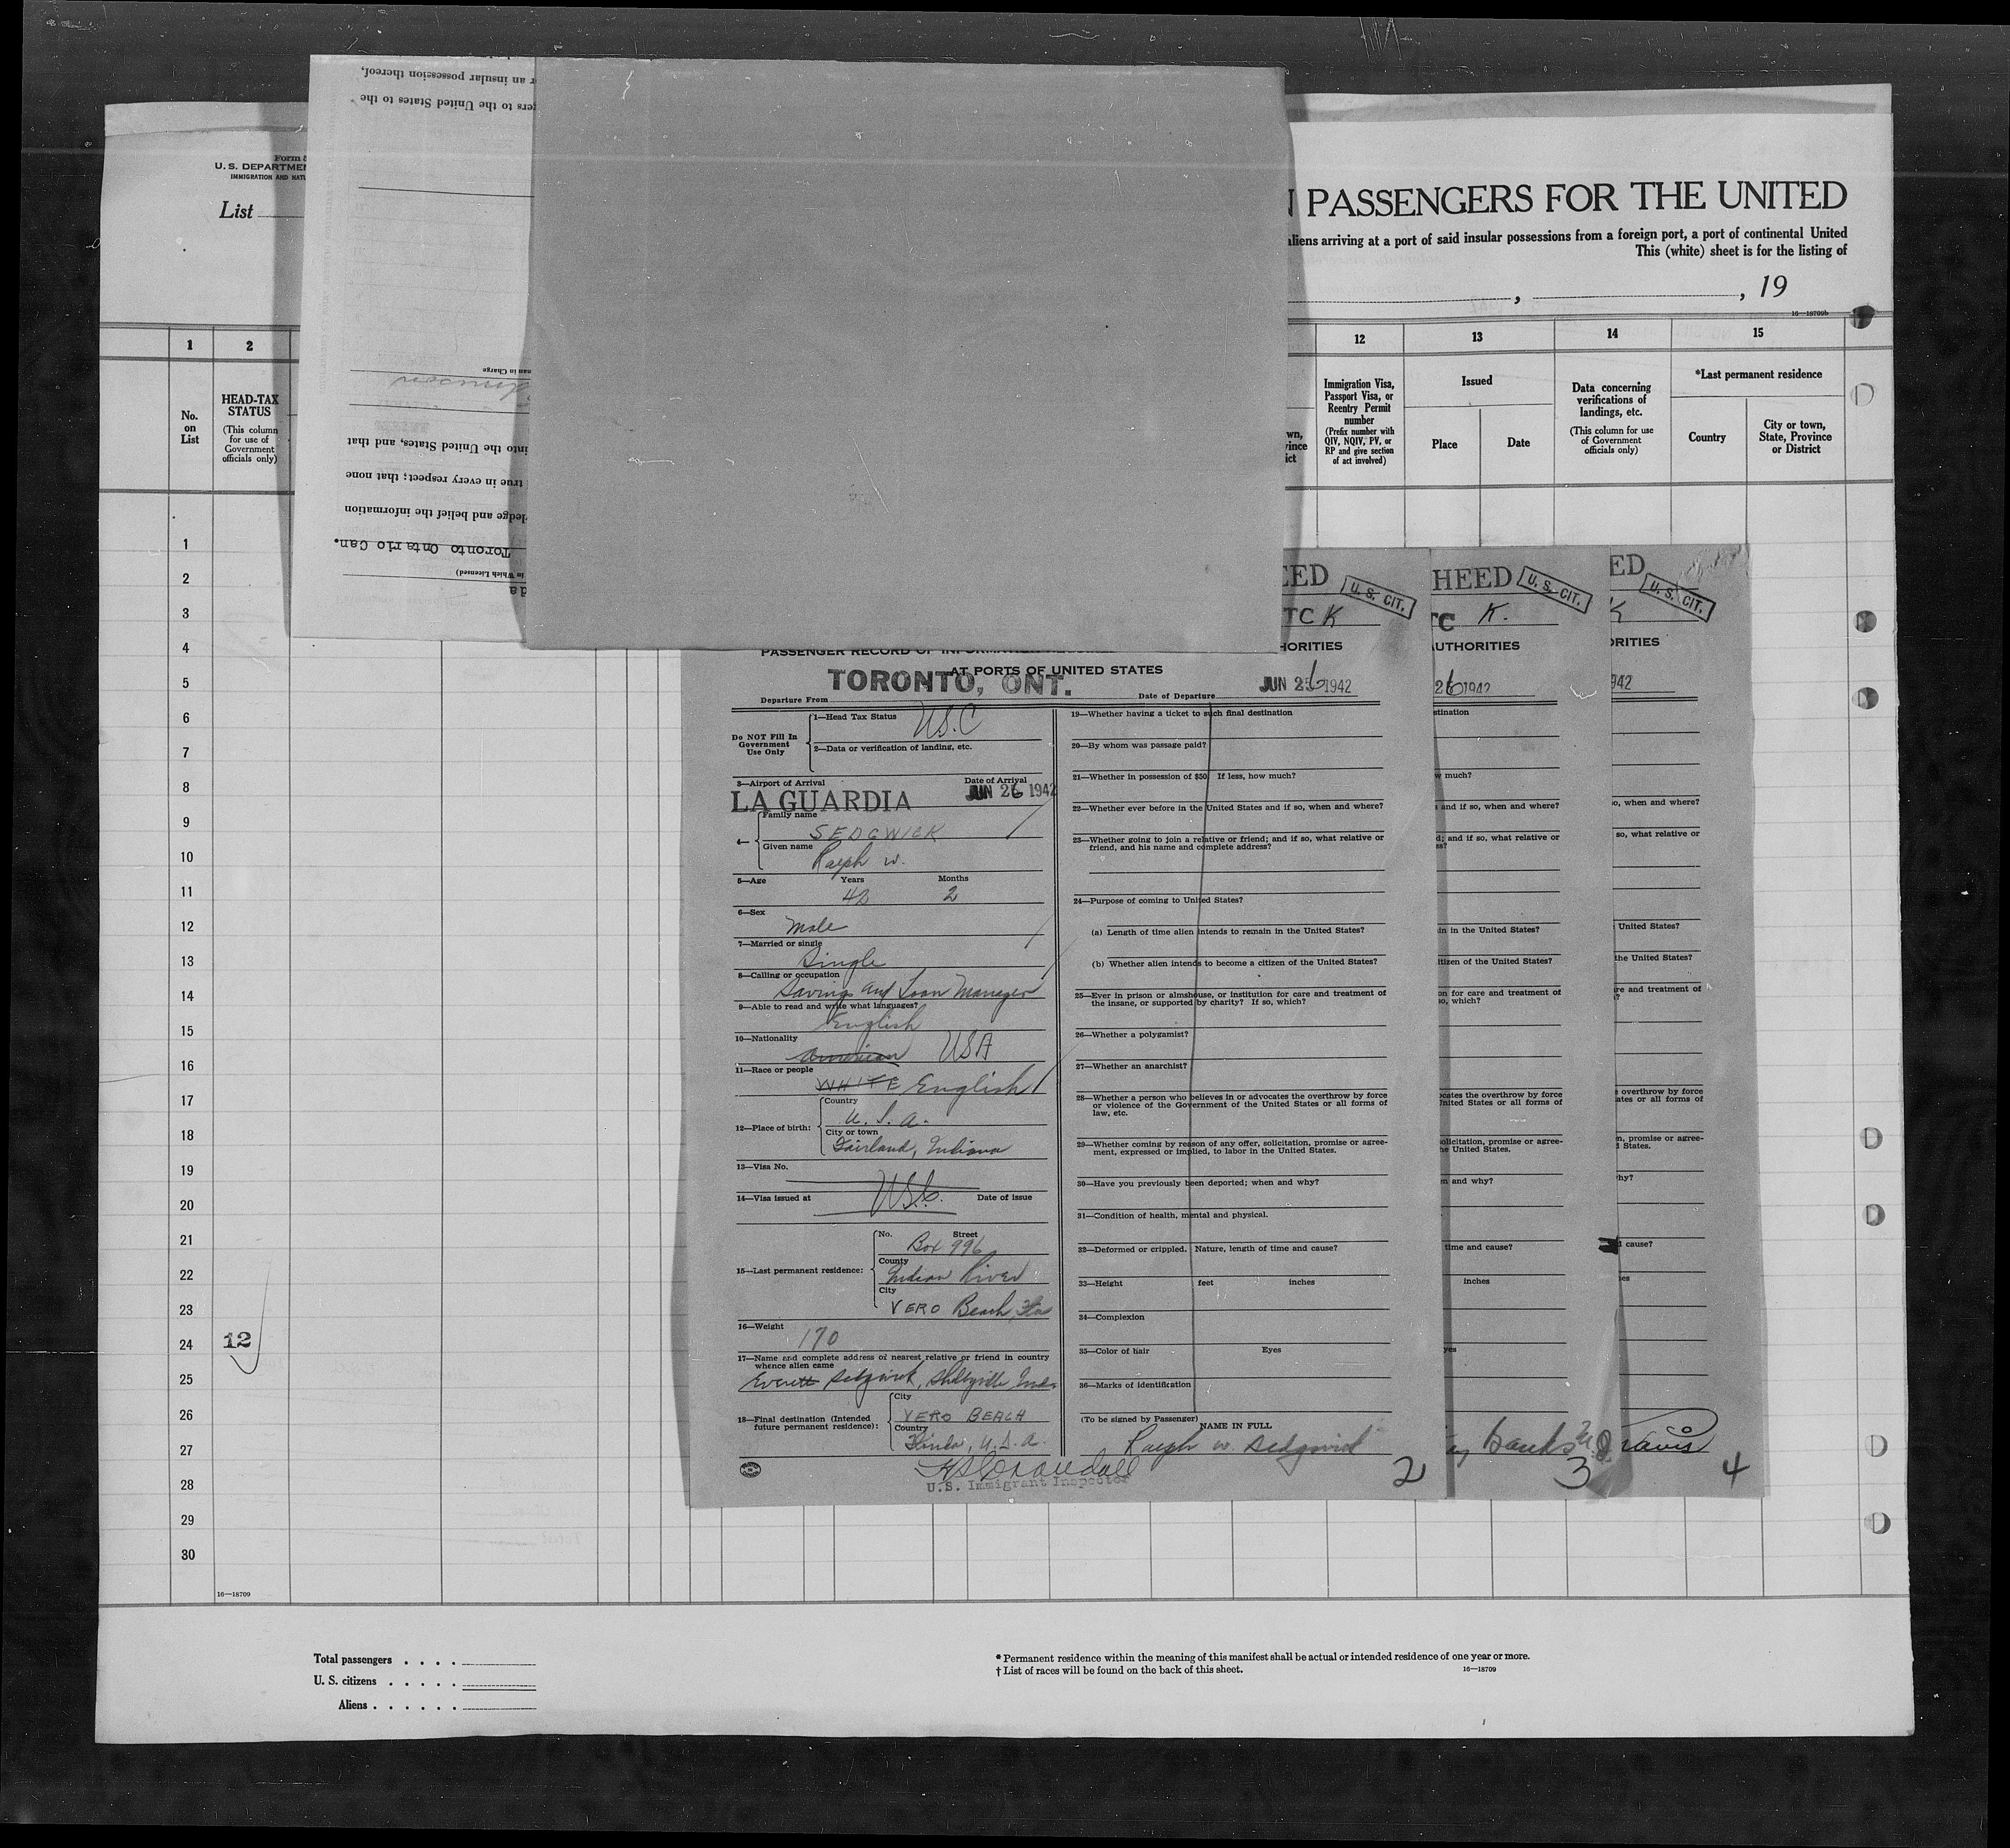 Form
U. S. DEPARTME
IMMIGRATION AND NATU
List
N PASSENGERS FOR THE UNITED
aliens arriving at a port of said insular possessions from a foreign port, a port of continental United
This (white) sheet is for the listing of
, , 19
16—18709b
r an insular possession thereof,
gers to the United States to the
man in Charge
into the United States, and that
true in every respect; that none
ledge and belief the information
Toronto Ontario Can.
in Which Licensed)
da
1 2 12 13 14 15
No. on List
HEAD-TAX STATUS
(This column for use of Government officials only)
wn,
vince
ict
Immigration Visa, Passport Visa, or Reentry Permit number
(Prefix number with QIV, NQIV, PV, or RP and give section of act involved)
Issued
Place
Date
Data concerning verifications of landings, etc.
(This column for use of Government officials only)
*Last permanent residence
Country
City or town, State, Province or District
1
2
3
4
5
6
7
8
9
10
11
12
13
14
15
16
17
18
19
20
21
22
23
24
12
25
26
27
28
29
30
16—18709
EED
U. S. CIT.
TC K
HORITIES
PASSENGER RECORD OF
AT PORTS OF UNITED STATES
TORONTO, ONT.
Departure From
Date of Departure
JUN 26 1942
Do NOT Fill In Government Use Only
1—Head Tax Status
U.S.C
2—Data or verification of landing, etc.
3—Airport of Arrival
Date of Arrival
LA GUARDIA
JUN 26 1942
4—
Family name
SEDGWICK
Given name
Ralph W.
5—Age
Years
Months
2
6—Sex
Male
7—Married or single
Single
8—Calling or occupation
Savings and Loan Manager
9—Able to read and write what languages?
English
10—Nationality
American USA
11—Race or people
WHITE English
12—Place of birth:
Country
U. S. A.
City or town
Fairland, Indiana
13—Visa No.
14—Visa issued at
USC.
Date of issue
15—Last permanent residence:
No.
Street
Box 996
County
Indian River
City
VERO Beach, Fla
16—Weight
170
17—Name and complete address of nearest relative or friend in country whence alien came
Everett Sedgwick, Shelbyville, Ind.
18—Final destination (Intended future permanent residence):
City
VERO BEACH
Country
Florida, U.S.A.
U.S. Immigrant Inspector
19—Whether having a ticket to such final destination
20—By whom was passage paid?
21—Whether in possession of $50. If less, how much?
22—Whether ever before in the United States and if so, when and where?
23—Whether going to join a relative or friend; and if so, what relative or
friend, and his name and complete address?
24—Purpose of coming to United States?
(a) Length of time alien intends to remain in the United States?
(b) Whether alien intends to become a citizen of the United States?
25—Ever in prison or almshouse, or institution for care and treatment of
the insane, or supported by charity? If so, which?
26—Whether a polygamist?
27—Whether an anarchist?
28—Whether a person who believes in or advocates the overthrow by force
or violence of the Government of the United States or all forms of
law, etc.
29—Whether coming by reason of any offer, solicitation, promise or agree-
ment, expressed or implied, to labor in the United States.
30—Have you previously been deported; when and why?
31—Condition of health, mental and physical.
32—Deformed or crippled. Nature, length of time and cause?
33—Height feet inches
34—Complexion
35—Color of hair Eyes
36—Marks of identification
(To be signed by Passenger)
NAME IN FULL
Ralph W. Sedgwick
2
HEED
U. S. CIT.
TC K.
UTHORITIES
26 1942
stination
w much?
and if so, when and where?
d; and if so, what relative or
ss?
in in the United States?
itizen of the United States?
on for care and treatment of
so, which?
cates the overthrow by force
United States or all forms of
olicitation, promise or agree-
he United States.
en and why?
time and cause?
inches
yes
3
ED
U. S. CIT.
K
ORITIES
1942
so, when and where?
so, what relative or
United States?
the United States?
re and treatment of
?
overthrow by force
ates or all forms of
n, promise or agree-
d States.
why?
d cause?
es
Davis
4
Total passengers . . . .
U. S. citizens . . . . .
Aliens . . . . . .
* Permanent residence within the meaning of this manifest shall be actual or intended residence of one year or more.
† List of races will be found on the back of this sheet.
16—18709